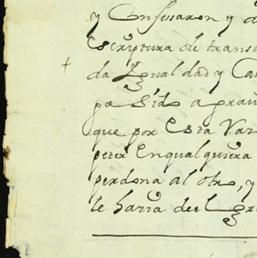 y Confessaron y d
escriptura de trans
da Igualdad y Ca
pa sido a
que por esta
peter en qualquiera
perdona al otro, y
le harra de